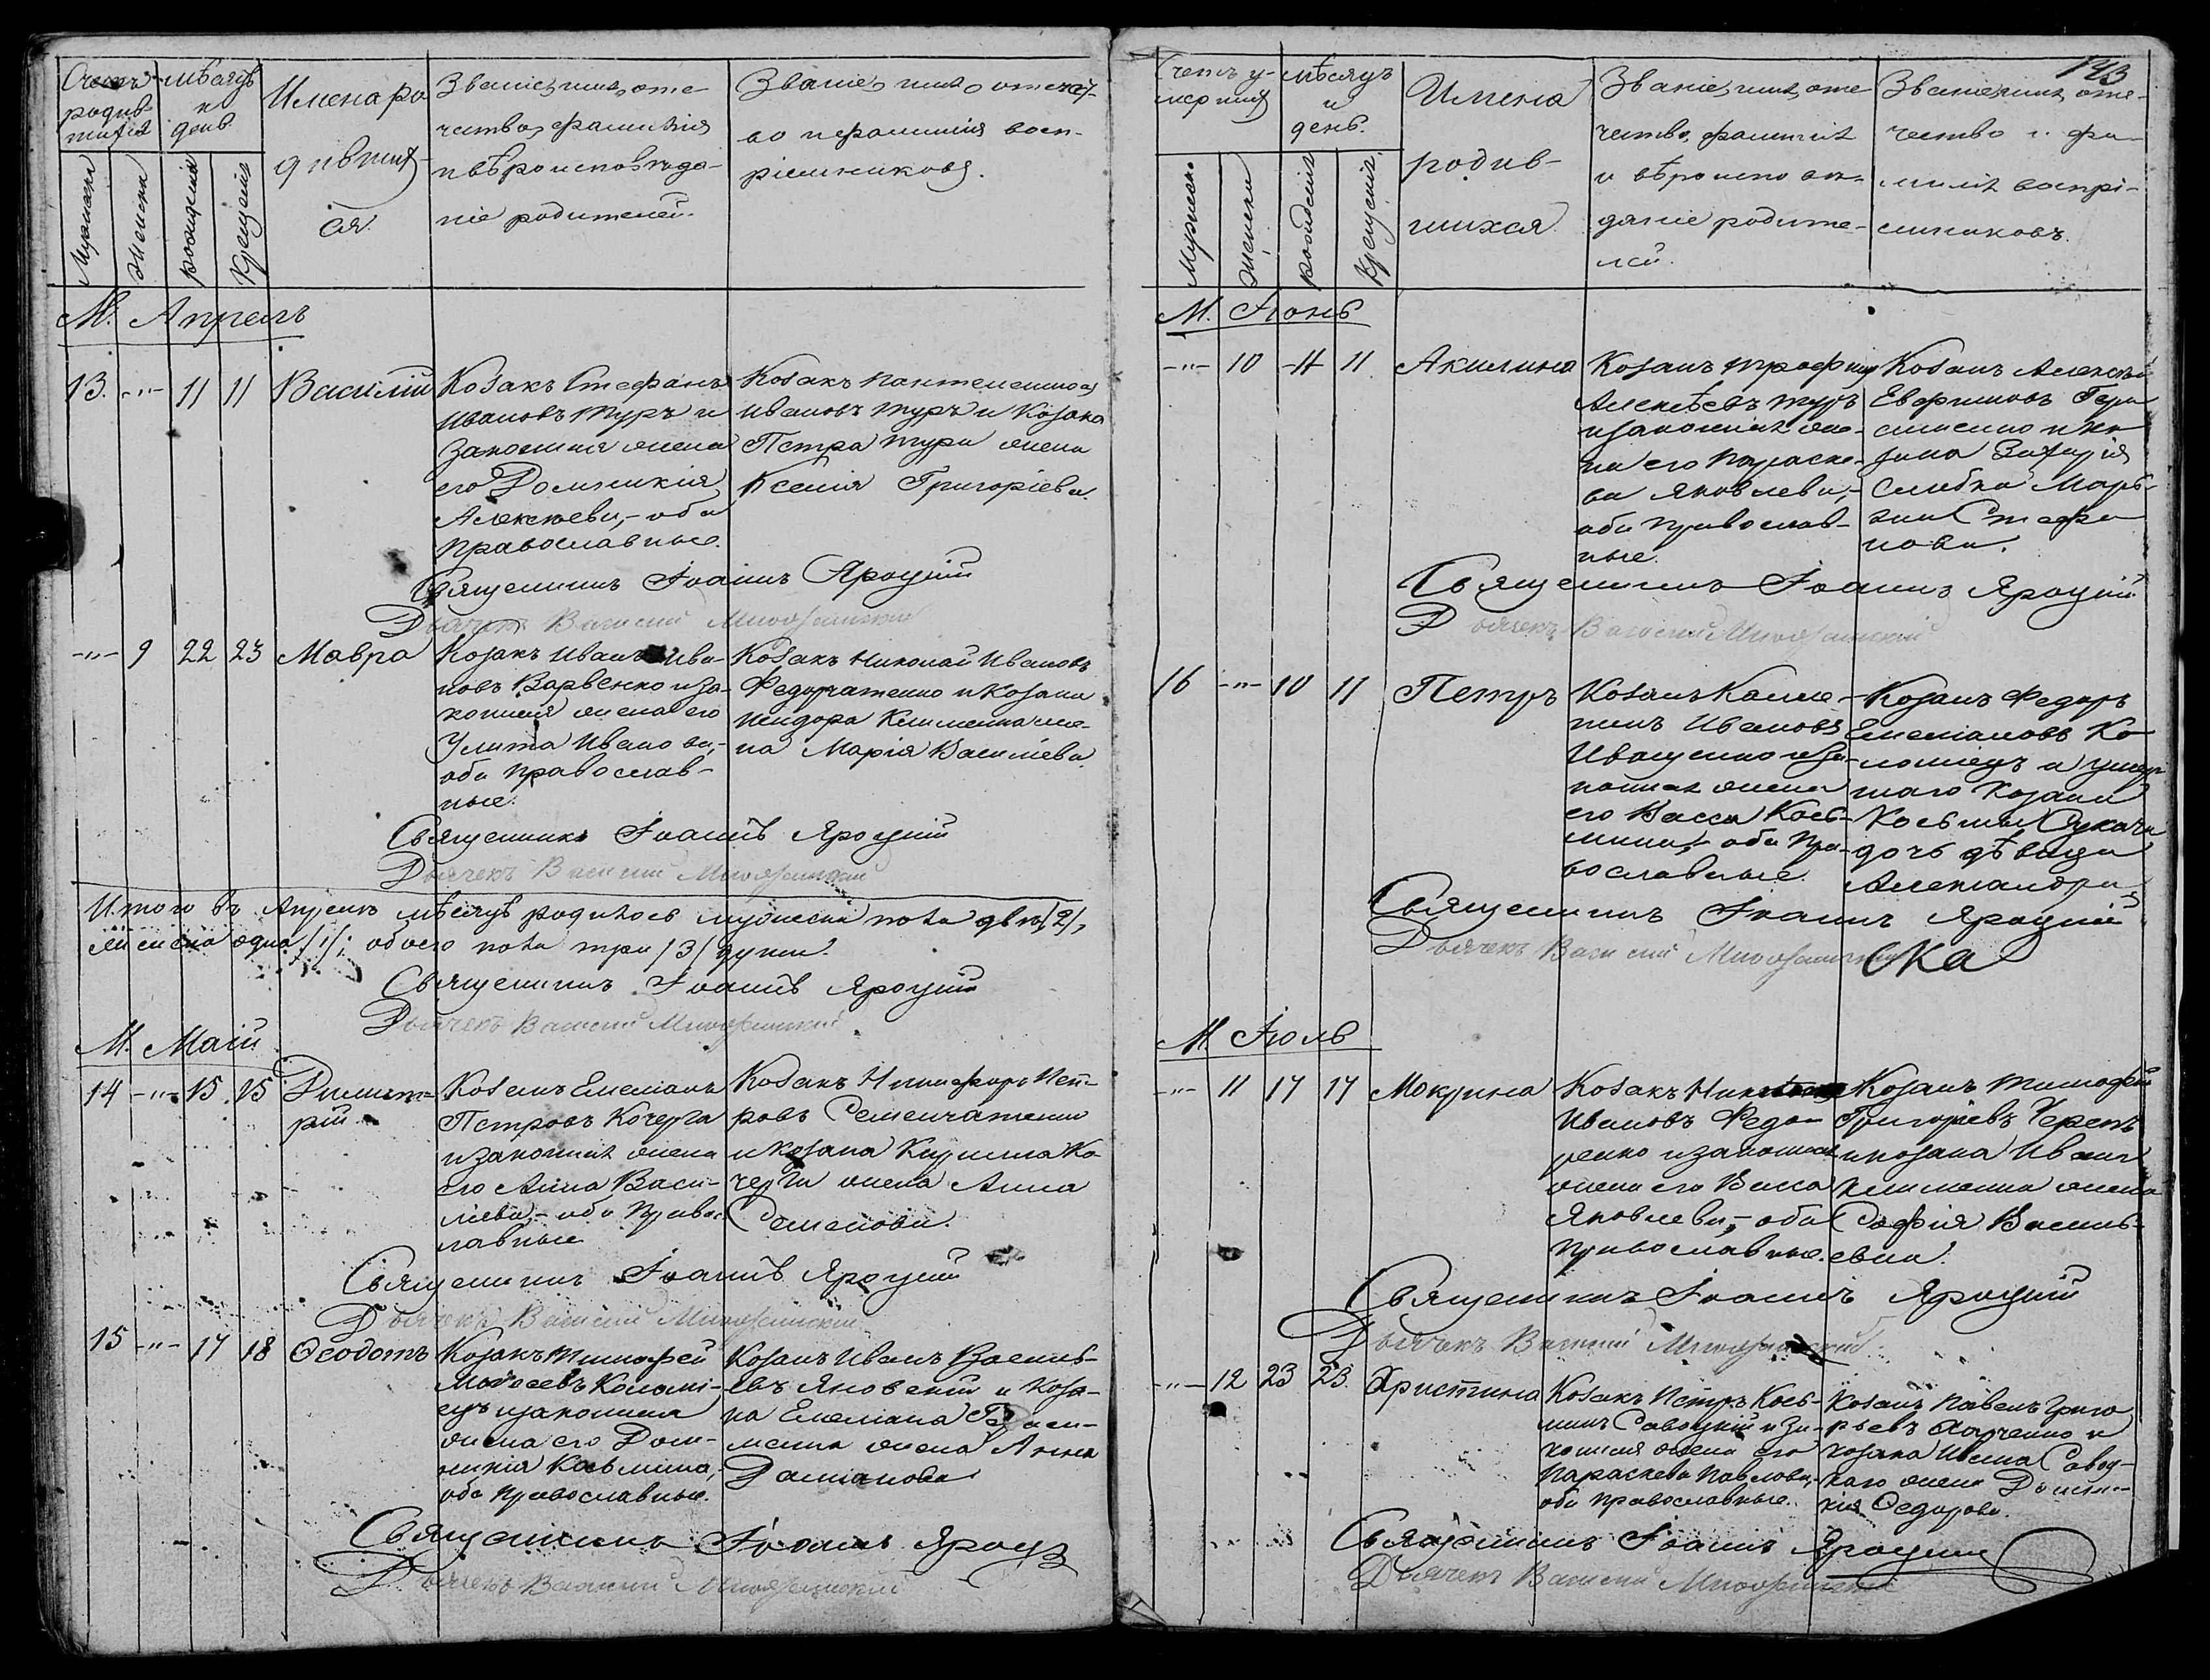 Счетъ родив-
шихся
мѣсяцъ
и
день.
Имена ро
дивших-
ся.
Званіе, имя, оте-
чество, фамилія
и вѣроисповѣда-
ніе родителей.
Званіе, имя, отечест-
во и фамилія восп-
ріемниковъ.
Мужеска
Женска
рожденія
Крещенія
М. Апрель
13. -"- 11 11 Василій
Козакъ Стефанъ
Ивановъ Туръ и
законная жена
его Домникія
Алексѣева, - оба
православные.
Козакъ Пантелеимонъ
Ивановъ Туръ и Козака
Петра Тура жена
Ксенія Григоріева.
Священникъ Іоаннъ Яроцкій
Дьячекъ Василій
-"- 9 22 23 Мавра
Козакъ Иванъ Ива-
новъ Варвенко и за-
конная жена его
Улита Иванова, -
оба православ-
ные.
Козакъ Николай Ивановъ
Федорченко и козака
Исидора Клименка же-
на Марія Василіева.
Священникъ Іоаннъ Яроцкій
Дьячекъ Василій
Итого въ Апрелѣ мѣсяцѣ родилось мужеска пола двѣ /2/,
женска одна /1/; обоего пола три /3/ души.
Священникъ Іоаннъ Яроцкій
Дьячекъ Василій
М. Маій
14 -"- 15 15 Димит-
рій
Козакъ Емеліанъ
Петровъ Кочерга
и законная жена
его Анна Васи-
лева, - оба правос
лавные
Козакъ Никифоръ Пет-
ровъ Семенченко
и козака Кирилла Ко
черги жена Анна
Семенова.
Священникъ Іоаннъ Яроцкій
Дьячекъ Василій
15 -"- 17 18 Ѳеодотъ
Козакъ Тимофей
Мойсеевъ Коломі-
ецъ и законная
жена его Дом-
никія Козьмина,
оба православные.
Козакъ Иванъ Василь-
евъ Яновскій и Коза-
ка Емеліана Гераси-
менка жена Анна
Даміанова
Священникъ Іоаннъ Яроц
Дьячекъ Василій
143
Счетъ у-
мершихъ
мѣсяцъ
и
день.
Имена
родив-
шихся.
Званіе, имя, оте
чество, фамилія
и вѣроиспове-
даніе родите-
лей.
Званіе, имя, оте-
чество и фа-
милія воспрі-
емниковъ.
Мужеска
Женска
рожденія
Крещенія.
М. Іюнь
-"- 10 11 11 Акилина
Козакъ Трофимъ
Алексѣевъ Туръ
и законная же-
на его Параске-
ва Яковлева, -
оба православ-
ные.
Козакъ Алексѣй
Евфимовъ Гера
сименко и ко
зака Захарія
Слабка Марь-
яна Стефа
нова.
Священникъ Іоаннъ Яроцкій
Дьячекъ Василій
16 -"- 10 11 Петръ
Козакъ Калис-
тъ Ивановъ
Иващенко и за-
конная жена
его Васса Козь-
мина, - оба пра-
вославные.
Козакъ Федоръ
Емеліановъ Ко
ломіецъ и умер
шаго Козака
Козьмы Лукача
дочь дѣвица
Александра.
Священникъ Іоаннъ Яроцкій
Дьячекъ Василій
ска
М. Іюль
-"- 11 17 17 Мокрина
Козакъ
Ивановъ Федо-
ренко и законная
жена его Васса
Яковлева, - оба
православные.
Козакъ Тимофей
Григоріевъ Черепъ
и козака Ивана
Клименка жена
Софія Василь-
евна.
Священникъ Іоаннъ Яроцкій
Дьячекъ Василій
-"- 12 23 23. Христина
Козакъ Петръ Козь-
минъ Савоцкій и за-
конная жена его
Параскева Павлова, -
оба православные.
Козакъ Павелъ Григо
рьевъ Харченко и
козака Ивана Савоц-
каго жена Домни-
кія Ѳедорова.
Священникъ Іоаннъ Яроцкій
Дьячекъ Василій